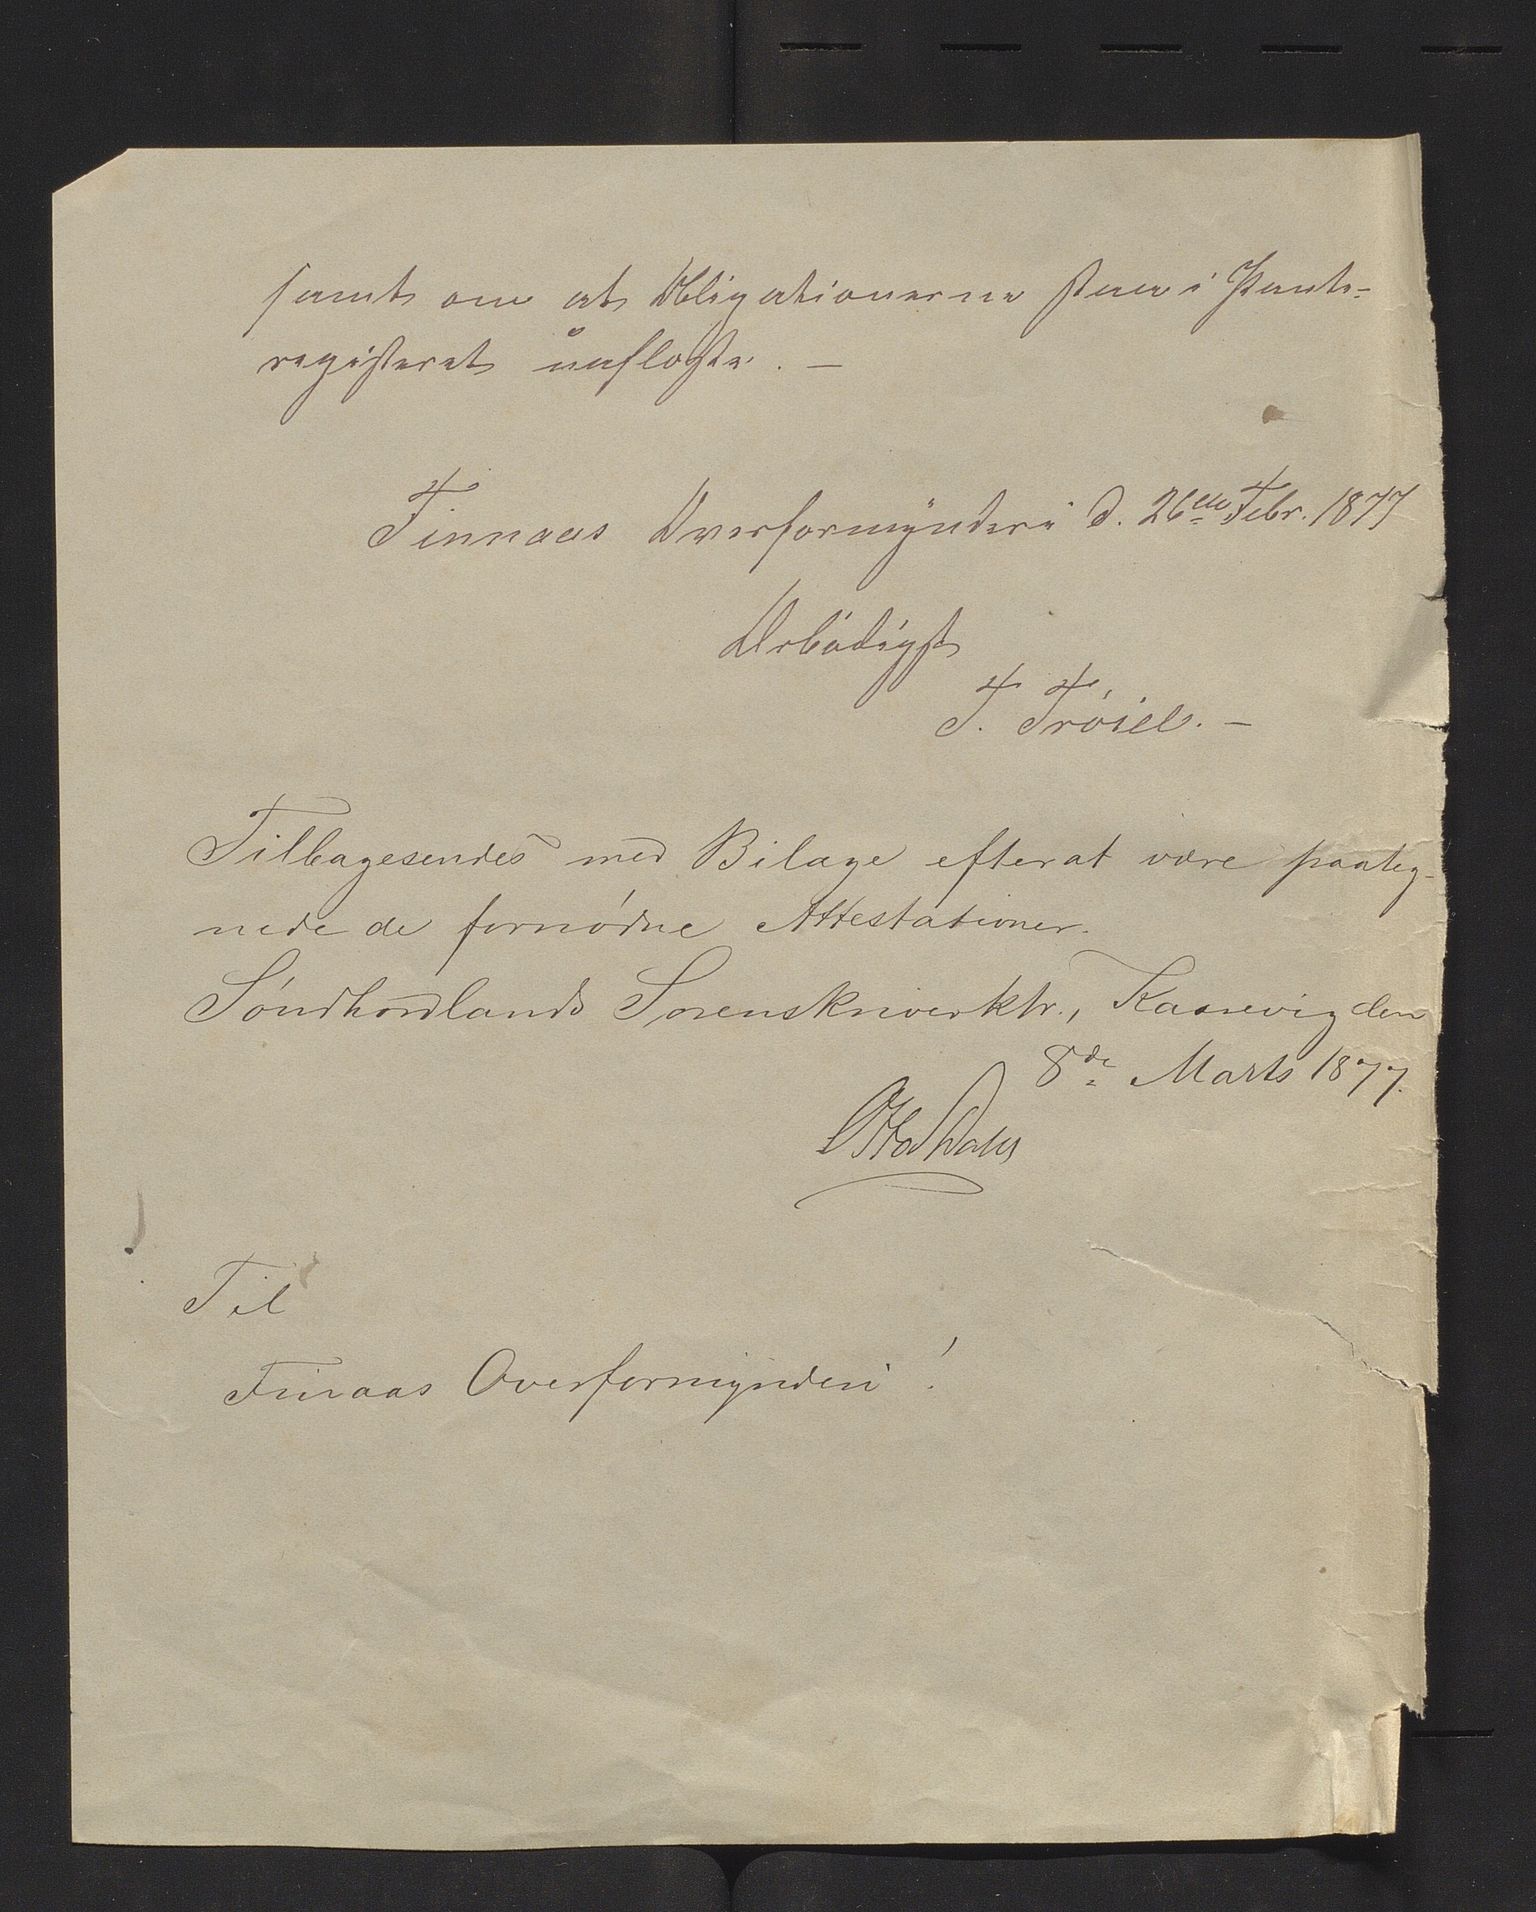 samt om at Obligationerne staa i Pante-
registeret uaflöste. —
Finnaas Overformynderi d. 26de Febr. 1877
Ærbödigst
T. Tröiel. —
Tilbagesendes med Bilage efterat være paateg-
nede de fornødne Attestationer.
Søndhordlands Sorenskriverktr., Kaarevig den
8de Marts 1877.
Otto
Til
Finaas Overformynderi!